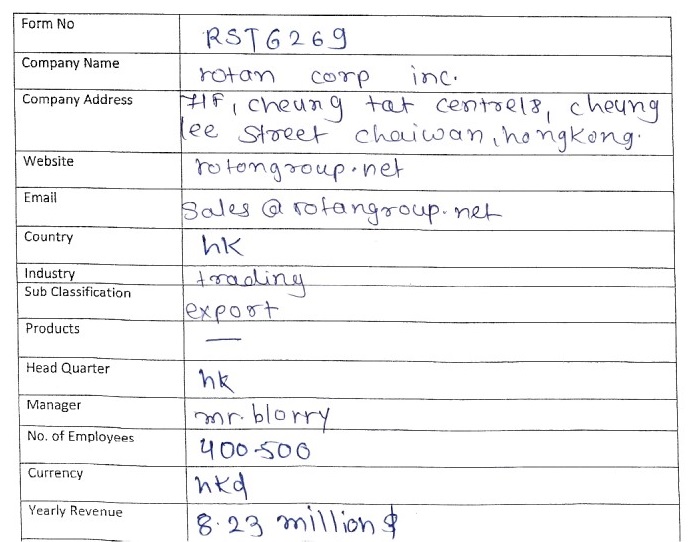 Form No RST6269
Company Name rotan corp inc.
Company Address 7/F, cheung tat centre18, cheung
lee street chaiwan, hongkong.
Website rotangroup.net
Email sales@rotangroup.net
Country hk
Industry trading
Sub Classification export
Products —
Head Quarter hk
Manager mr. blorry
No. of Employees 400-500
Currency hkd
Yearly Revenue 8.23 million $